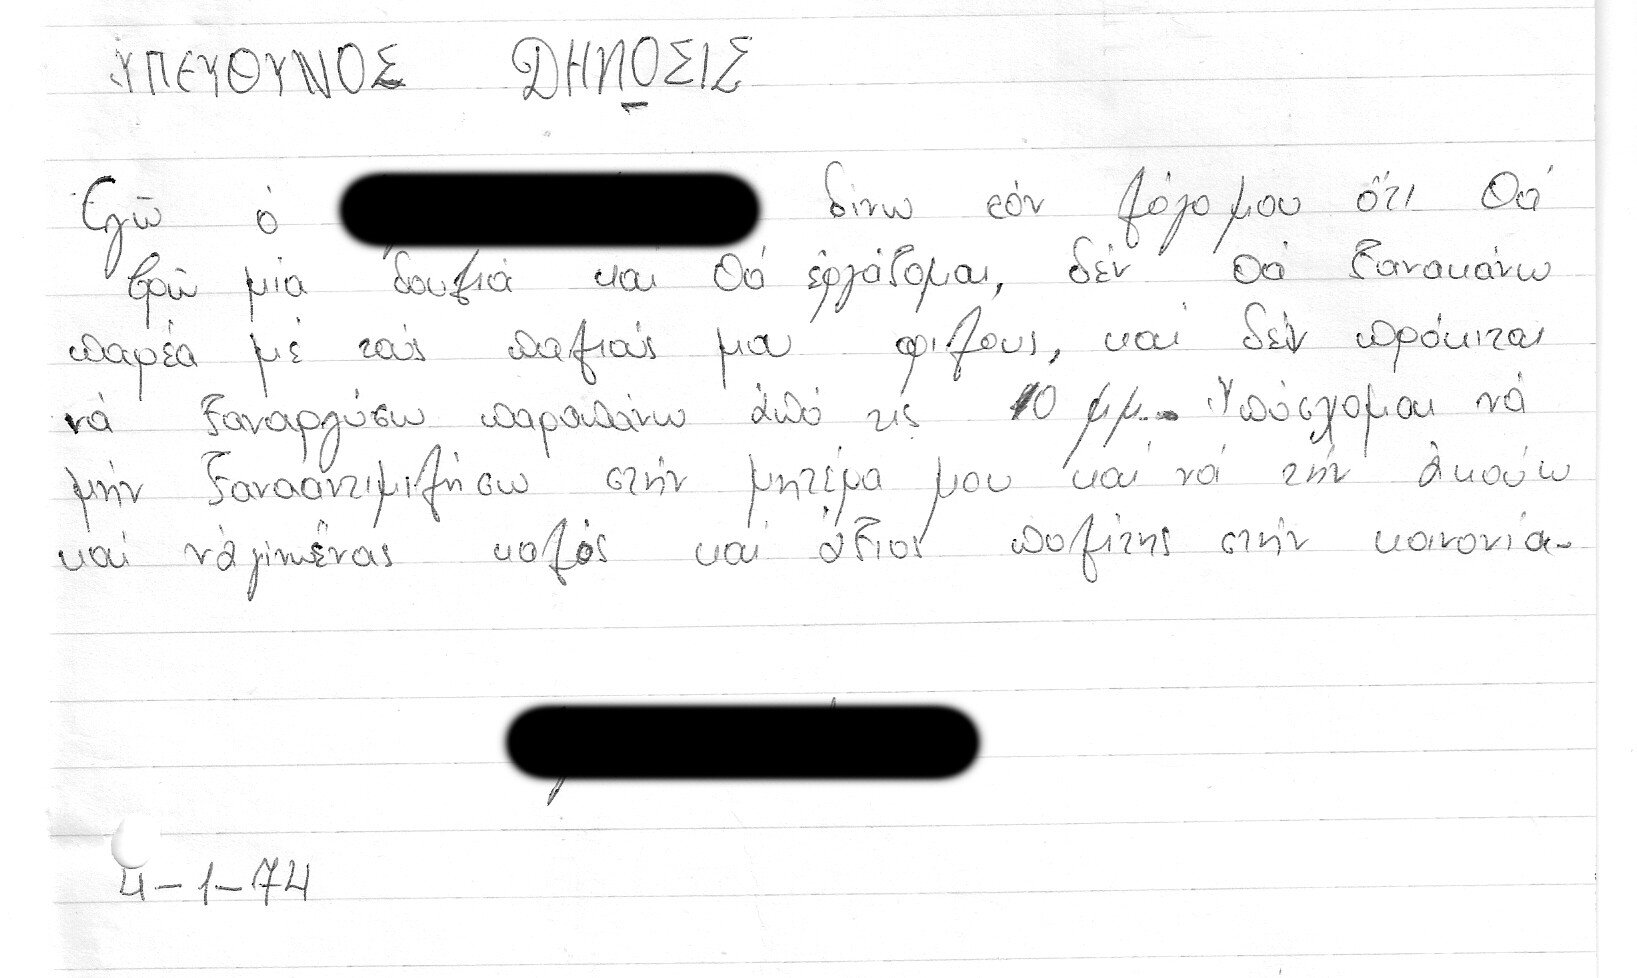 ΥΠΕΥΘΥΝΟΣ ΔΗΛΟΣΙΣ
Ἐγῶ ὁ δίνω τόν λόγο μου ὅτι θά
βρῶ μία δουλιά και θά ἐργάζομαι, δέν θά ξανακάνω
παρέα μέ τούς παλιούς μου φίλους, καί δέν πρόκιται
νά ξαναργύσω παραπάνω ἀπό τις 10 μμ. Ὑπόσχομαι νά
μήν ξανααντιμιλήσω στήν μητέρα μου καί νά τήν ἀκούω
καί νά γίνω ἕνας καλός καί ἄξιος πολίτης στήν κοινονία.
4-1-74